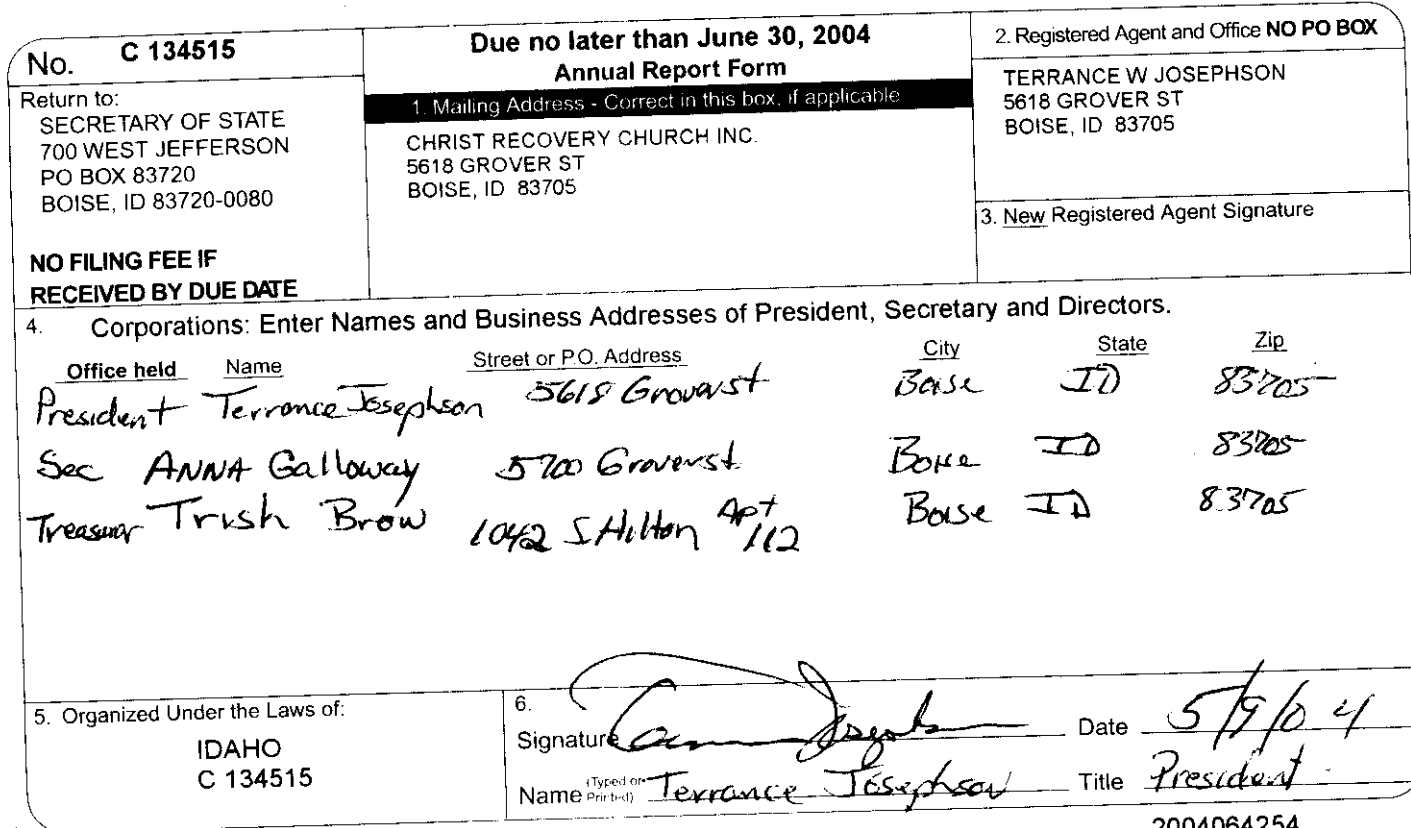 No. C 134515
Return to:
SECRETARY OF STATE
700 WEST JEFFERSON
PO BOX 83720
BOISE, ID 83720-0080
NO FILING FEE IF
RECEIVED BY DUE DATE
Due no later than June 30, 2004
Annual Report Form
1. Mailing Address - Correct in this box, if applicable
CHRIST RECOVERY CHURCH INC.
5618 GROVER ST
BOISE, ID 83705
2. Registered Agent and Office NO PO BOX
TERRANCE W JOSEPHSON
5618 GROVER ST
BOISE, ID 83705
3. New Registered Agent Signature
4. Corporations: Enter Names and Business Addresses of President, Secretary and Directors.
Office held Name Street or P.O. Address City State Zip
President Terrance Josephson 5618 Grover st Boise ID 83705
Sec ANNA Galloway 5700 Grover st Boise ID 83705
Treasurer Trish Brow 1042 S Hilton Apt 112 Boise ID 83705
5. Organized Under the Laws of:
IDAHO
C 134515
6.
Signature Date 5/9/04
Name (Typed or Printed) Terrance Josephson Title President
2004064254